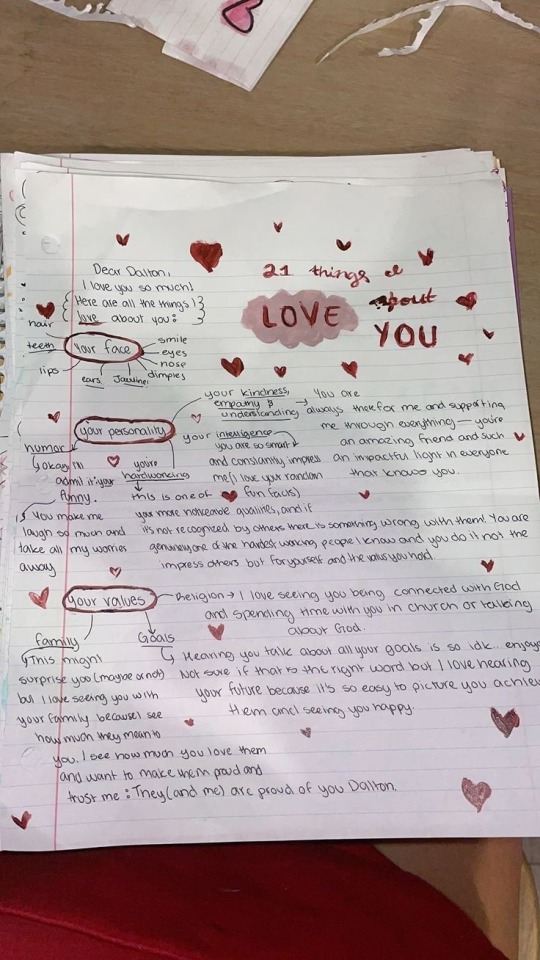 21 things I
LOVE about
YOU
Dear Dalton,
I love you so much!
Here are all the things I
love about you:
your face
hair
teeth
lips
ears
Jawline
dimples
nose
eyes
smile
your personality
your kindness,
empathy &
understanding → You are
always there for me and supporting
me through everything — you're
an amazing friend and such
an impactful light in everyone
that knows you.
your intelligence
you are so smart
and constantly impress
me (I love your random
fun facts)
humor
okay I'll
admit it: your
funny.
You make me
laugh so much and
take all my worries
away
you're
hardworking
this is one of
your more noticeable qualities, and if
it's not recognized by others there is something wrong with them! You are
genuinely one of the hardest working people I know and you do it not the
impress others but for yourself and the values you hold.
your values
Religion → I love seeing you being connected with God
and spending time with you in church or talking
about God.
family
This might
surprise you (maybe or not)
but I love seeing you with
your family because I see
how much they mean to
you. I see how much you love them
and want to make them proud and
trust me: They (and me) are proud of you Dalton.
Goals
Hearing you talk about all your goals is so idk... enjoye
Not sure if that is the right word but I love hearing
your future because it's so easy to picture you achie
them and seeing you happy.